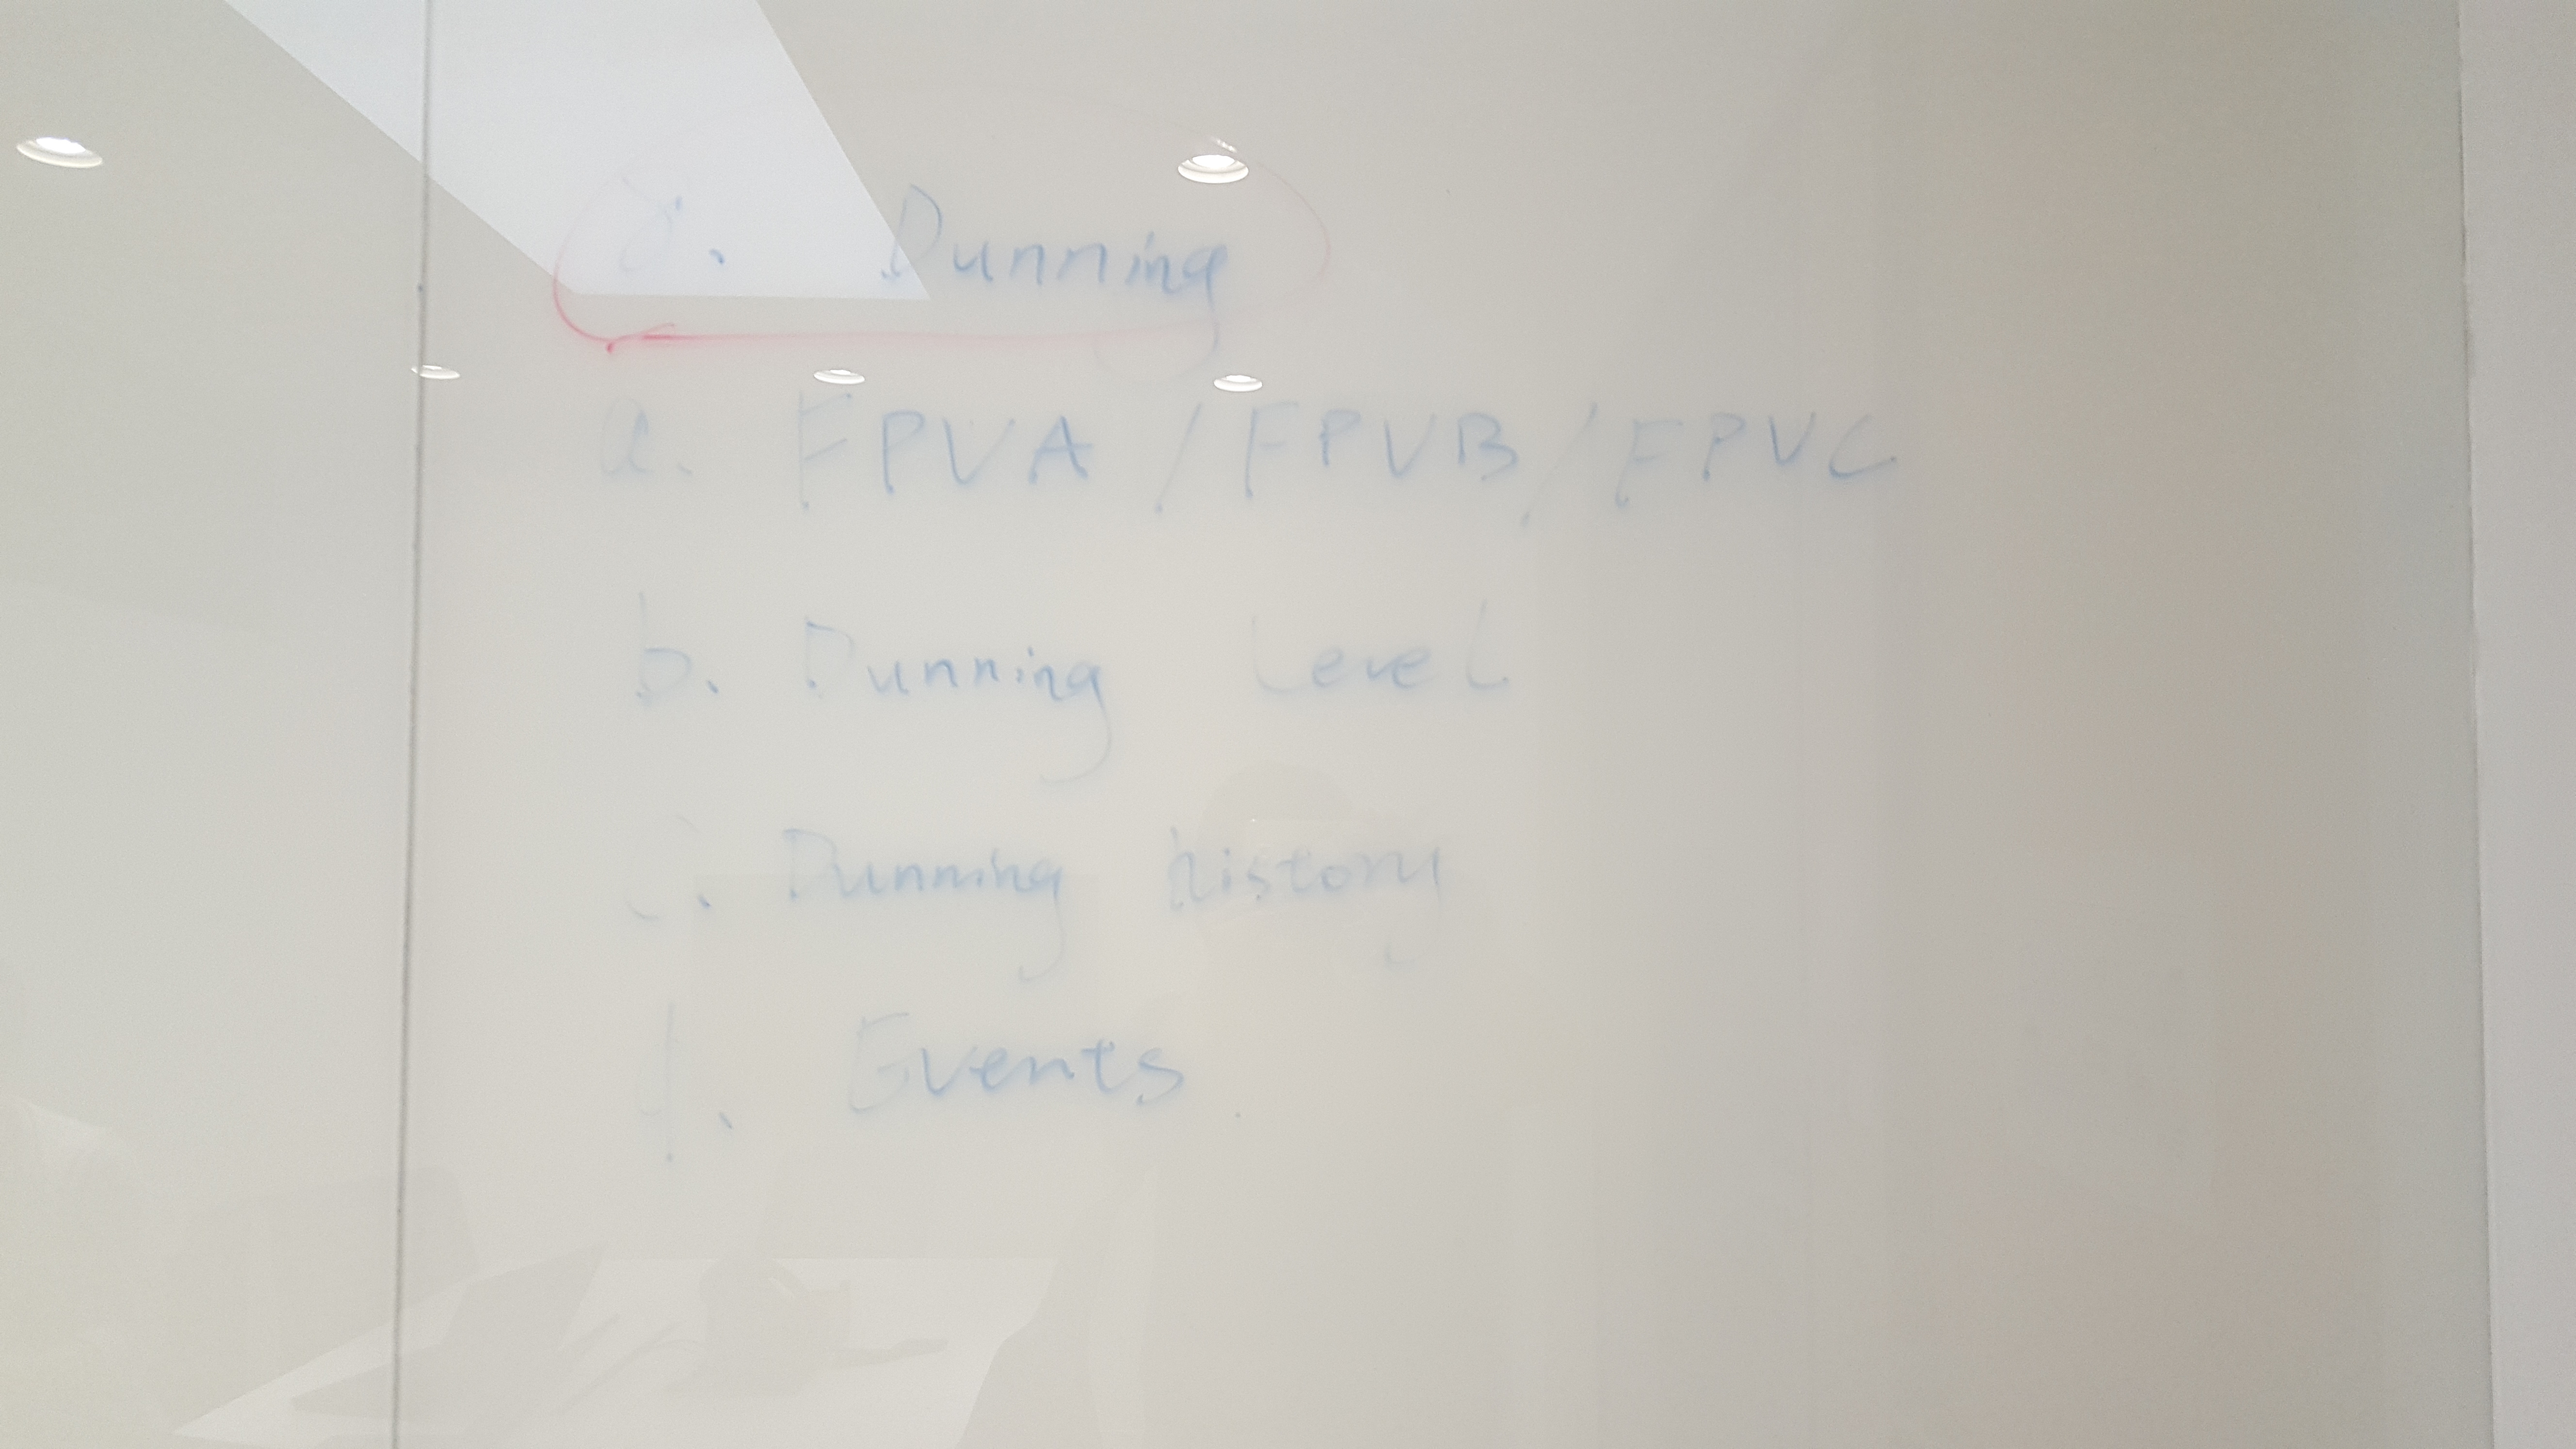 8. Dunning
a. FPVA / FPVB / FPVC
b. Dunning Level
c. Dunning history
d. Events